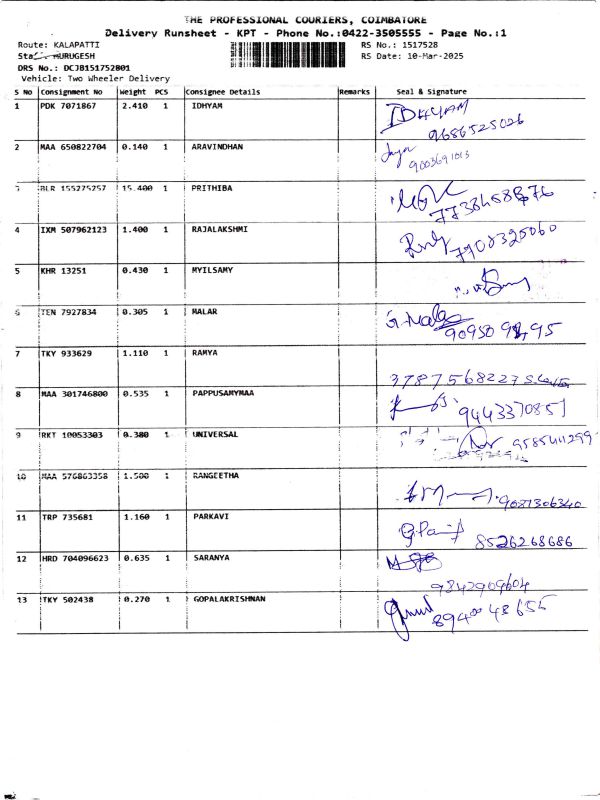 THE PROFESSIONAL COURIERS, COIMBATORE
Delivery Runsheet - KPT - Phone No.:0422-3505555 - Page No.:1
Route: KALAPATTI RS No.: 1517528
MURUGESH RS Date: 10-Mar-2025
DRS No.: DCJB151752801
Vehicle: Two Wheeler Delivery
S No Consignment No Weight PCS Consignee Details Remarks Seal & Signature
1 PDK 7071867 2.410 1 IDHYAM IDHYAM
9686525026
2 MAA 650822704 0.140 1 ARAVINDHAN
9003691013
3 BLR 155275257 15.400 1 PRITHIBA
4 IXM 507962123 1.400 1 RAJALAKSHMI
7708325060
5 KHR 13251 0.430 1 MYILSAMY
6 TEN 7927834 0.305 1 MALAR G. Mala
7 TKY 933629 1.110 1 RAMYA
37875682273
8 MAA 301746800 0.535 1 PAPPUSAMYMAA
9443370851
9 RKT 10053303 0.380 1 UNIVERSAL
9585411299
10 MAA 576863358 1.500 1 RANGEETHA
9087306340
11 TRP 735681 1.160 1 PARKAVI
8526268686
12 HRD 704096623 0.635 1 SARANYA
9842909604
13 TKY 502438 0.270 1 GOPALAKRISHNAN